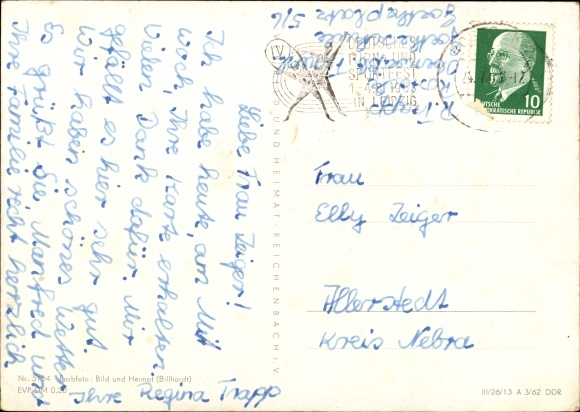 Liebe Frau Zeiger!
Ich habe heute, am Mitt
woch, Ihre Karte erhalten.
Vielen Dank dafür. Mir
gefällt es hier sehr gut.
Wir haben schönes Wetter.
Es grüßt Sie, Manfred und
Ihre Familie recht herzlich
Ihre Regina Trapp
R. Trapp
Goetheplatz 5/6
IV
DEUTSCHES
TURN- UND
SPORTFEST
IN LEIPZIG
DEUTSCHE
DEMOKRATISCHE REPUBLIK
10
Frau
Elly Zeiger
Allerstedt
Kreis Nebra
BILD UND HEIMAT REICHENBACH i. V.
Nr. Farbfoto: Bild und Heimat (Billhardt)
EVP DM 0,20
III/26/13 A 3/62 DDR